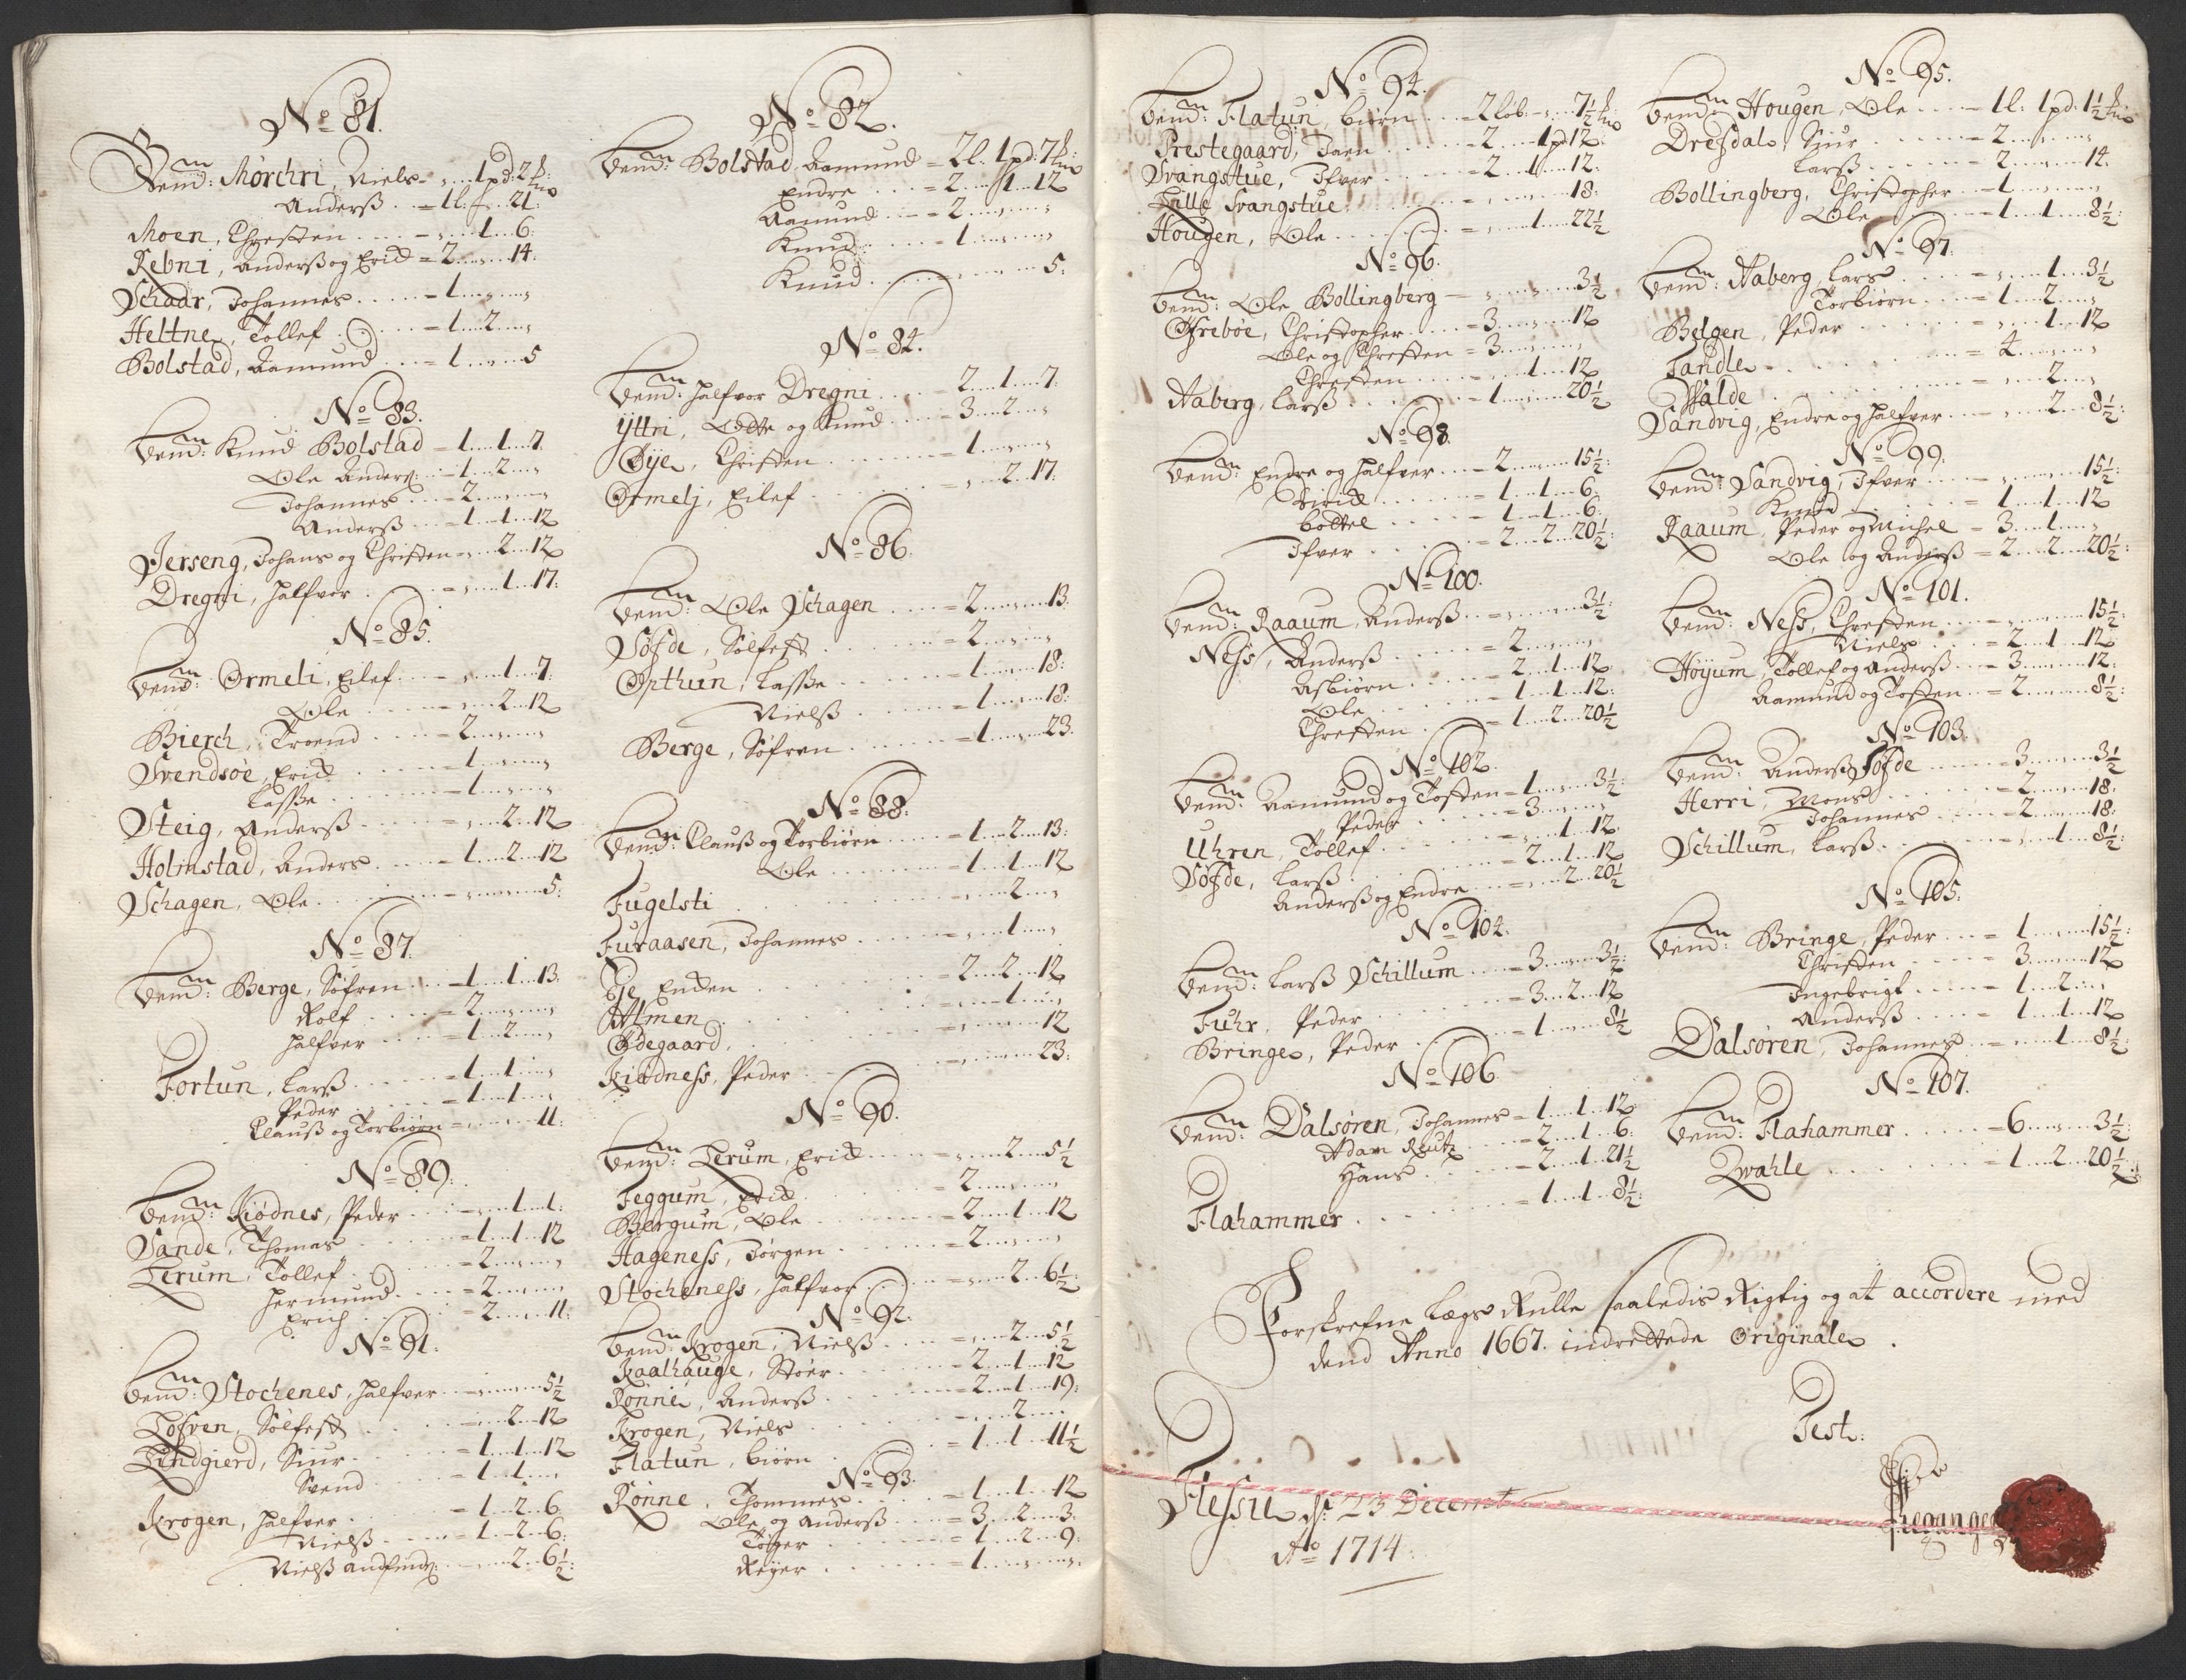 No 81.
Bemt: Mørchri, Niels - „ 1 pd: 2 ℔:
Anderß - 1 l: - 21:
Moen, Chresten - „ 1 6:
Rebni, Anderß og Erich = 2 „ 14:
Schaar, Johannes - 1 „ „
Heltne, Tollef - 1 2 „
Bolstad, Aamund - 1 „ 5
No 83.
bemt: Knud Bolstad - 1 1 7
Ole Anderß: - 1 2 „
Johannes - 2 „ „
Anderß - 1 1 12
Jerseng, Johans og Christen - „ 2 12
Dregni, Halfvor - „ 1 17:
No 85.
bemt: Ormeli, Eilef - „ 1 7:
Ole - „ 2 12
Bierch, Troend - 2 „ „
Svendsøe, Erich - 1 „ „
Lasße - 1 „ „
Steig, Anderß - „ 2 12
Holmstad, Anders - 1 2 12
Schagen, Ole - „ „ 5:
No 87.
bemt: Berge, Søfren - 1 1 13:
Rolf - 2 „ „
Halfver - 1 2 „
Fortun, Larß - 1 1 „
Peder - 1 1 „
Clauß og Torbiørn - „ „ 11:
No 89:
bemt: Kiødnes, Peder - „ 1 1:
Sande, Thomas - 1 1 12
Lerum, Tollef - 2 „ „
Hermund - 2 „ „
Erich - 2 „ 11:
No 91:
bemt: Stochenes, Halfver - „ „ 5½
Løfven, Sølfest - „ 2 12
Lindgierd, Siur - 1 1 12
Svend - 1 1 „
Krogen, Halfver - 1 2 6
Nielß - 1 2 6:
Nielß - „ 2 6½:
No 82.
bemt: Bolstad, Aamund = 2 l. 1 pd: 7 ℔:
Endre - 2 1 12
Aamund - 2 „ „
Knud - 1 „ „
Knud - „ „ 5:
No 84.
bemt: Halfvor Dregni - 2 1 7:
Yttri, Odte og Knud - 3 2 „
Øye, Christen - 1 „ „
Ormelj, Eilef - „ 2 17:
No 86.
bemt: Ole Schagen - 2 „ 13:
Søfde, Sølfest - 2 „ „
Opthun, Lasße - 1 „ 18:
Nielß - 1 „ 18:
Berge, Søfren - 1 „ 23:
No 88:
bemt: Clauß og Torbiørn - 1 2 13:
Ole - 1 1 12
Fugelsti - „ 2 „
Furaasen, Johannes - „ 1 „
Enden - 2 2 12
Almen - „ 1 „
Ødegaard - „ „ 12
Kiødness, Peder - „ „ 23:
No 90.
bemt: Lerum, Erich - „ 2 5½
Feggum, Erich - 2 „ „
Bergum, Ole - 2 1 12
Hageness, Jørgen - 2 „ „
Stocheness, Halfvor - „ 2 6½:
No 92.
bemt: Krogen, Nielß - „ 2 5½
Kaalhauge, Støer - 2 1 12
Rønnei, Anderß - 2 1 19:
Krogen, Niels - „ 2 „
Flatun, biørn - 1 1 11½
No 93:
Rønne, Thommes - 1 1 12
Ole og Anderß - 3 2 3:
Tøger - 1 2 9:
Reyer - 1 „ „
No 94.
bemt: Flatun, biørn - 2 løb: „ 7½ ℔:
Prestegaard, Joen - 2 1 pd 12:
Svangstue, Ifver - 2 1 12:
Lille Svangstue - „ „ 18:
Hougen, Ole - „ 1 22½
No 96.
bemt: Ole Bollingberg - „ „ 3½
Øfrebøe, Christopher - 3 „ 12
Ole og Chresten = 3 „ „
Chresten - „ 1 12
Aaberg, Larß - 1 „ 20½
No 98.
bemt: Endre og Halfver - 2 „ 15½:
Dirich - 1 1 6:
Bottel - 1 1 6:
Ifver - 2 2 20½:
No 100.
bemt: Raaum, Anderß - „ „ 3½:
Ness, Anderß - 2 „ „
Asbiørn - 2 1 12
Ole - 1 1 12:
Chresten - 1 2 20½
No 102.
bemt: Aamund og Tosten - 1 „ 3½:
Peder - 3 „ „
Uhren, Tollef - „ 1 12
Søfde, Larß - 2 1 12
Anderß og Endre - „ 2 20½
No 104:
bemt: Larß Schillum - 3 „ 3½:
Fuhr, Peder - 3 2 12
Bringe, Peder - 1 „ 8½
No 106
bemt: Dalsøren, Johannes - 1 1 12
Adam Reutz - 2 1 6:
Hans - 2 1 21½
Flahammer - 1 1 8½:
No 95.
bemt: Hougen, Ole - 1 l: 1 pd: 1½ ℔:
Dresdal, Siur - 2 „ „
Larß - 2 „ 14:
Bollingberg, Christopher - 1 „ „
Ole - 1 1 8½:
No 97.
bemt: Aaberg, Lars - „ 1 3½
Torbiørn - 1 2 „
Belgen, Peder - „ 1 12
Tandle - 4 „ „
Walde - „ 2 „
Sandvig, Endre og Halfver - „ 2 8½:
No 99:
bemt: Sandvig, Ifver - „ „ 15½:
Knud - 1 1 12
Raaum, Peder og Michel - 3 1 „
Ole og Anderß - 2 2 20½:
No 101.
bemt: Ness, Chresten - „ „ 15½:
Niels - 2 1 12
Høyum, Tollef og Anderß - 3 „ 12:
Aamund og Tosten - 2 „ 8½:
No 103:
bemt: Anderß Søfde - 3 „ 3½
Herri, Mons - 2 „ 18:
Johannes - 2 „ 18:
Schillum, Larß - „ 1 8½:
No 105:
bemt: Bringe, Peder - 1 „ 15½:
Christen - 3 „ 12
Ingebrigt - 1 2 „
Anderß - 1 1 12
Dalsøren, Johannes - „ 1 8½:
No 107.
bemt: Flahammer - 6 „ 3½:
Qwahle - 1 2 20½:
Forskrefne Lægs Rulle saaledis Rigtig og at accordere med
dend Anno 1667. indrettede Originale.
Test:
Flessu, d: 23 Decembr
Ao 1714.